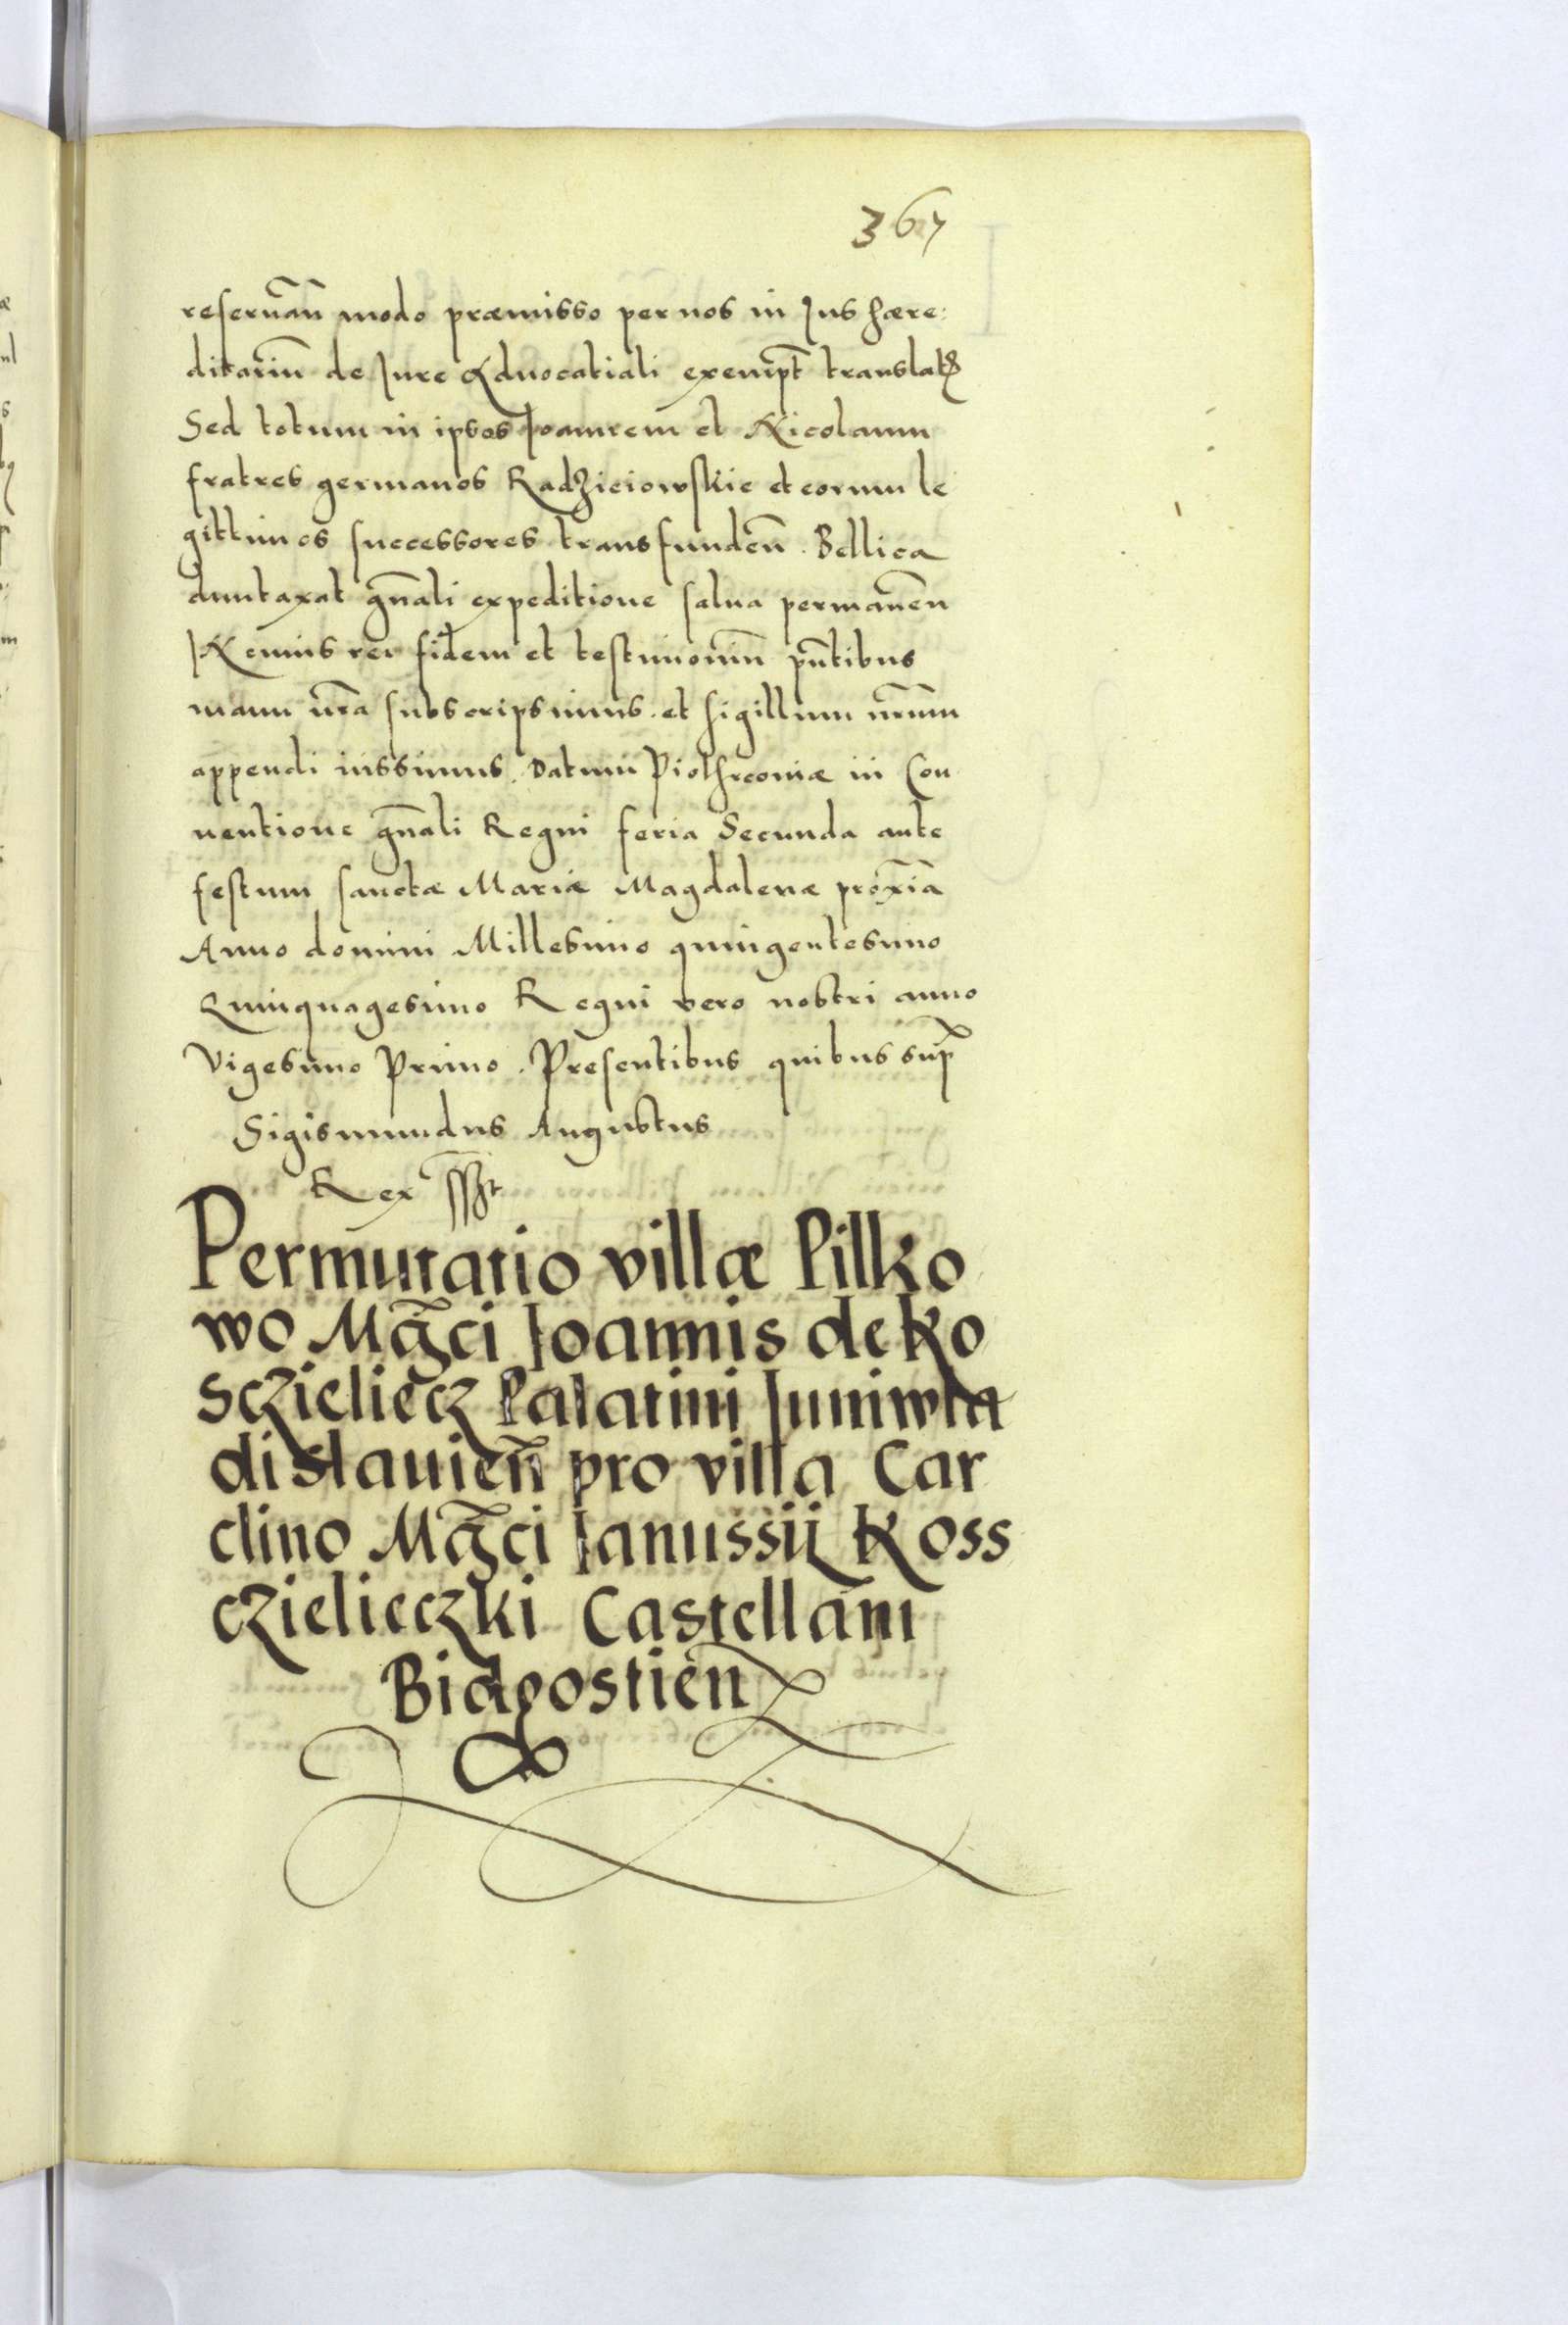 367
reseruan̄ modo præmisso per nos in Jus hære:
ditariū de Jure Aduocatiali exempt̄ translatꝭ
Sed totum in ipsos Joannem et Nicolaum
fratres germanos Radzieiowskie et eorum le
gittimos successores transfundeñ. Bellica
duntaxat gñali expeditione salua permaneñ
In cuius rei fidem et testimoniū pñtibus
manu ñra subscripsimus. et sigillum ñrum
appendi iussimus. Datum Piothrcouiæ in Con
uentione gñali Regni feria Secunda ante
festum sanctæ Mariæ Magdalenæ proxīa
Anno domini Millesimo quingentesimo
Quinquagesimo Regni vero nostri anno
Vigesimo Primo. Presentibus quibus sup̄
Sigismundus Augustus
Rex sszt
Permutatio villæ Pilko
wo Mḡci Joannis de Ko
sczieliecz Palatini Juniwla
dislauieñ pro villa Car
clino Mḡci Janussij Koss
czielieczki Castellani
Bidgostieñ